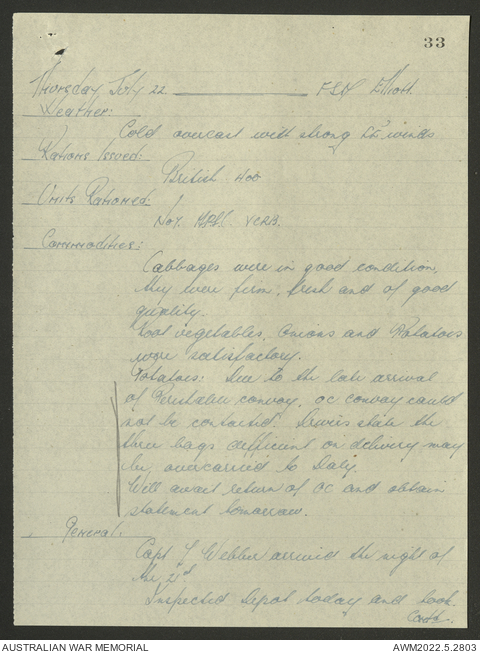 33
Thursday July 22 FSD Elliott.
Weather:
Cold overcast with strong winds
Rations Issued:
British 400
Units Rationed:
No 1. VCRB.
Commodities:
Cabbages were in good condition,
they were firm, fresh and of good
quality.
Root vegetables, Onions and Potatoes
were satisfactory.
Potatoes: Due to the late arrival
of convoy, OC convoy could
not be contacted. Drivers state the
three bags deficient on delivery may
be overcarried to Daly.
Will await return of OC and obtain
statement tomorrow.
General.
Capt Webber arrived the night of
the 21st
Inspected Depot today and took
Contd.
AUSTRALIAN WAR MEMORIAL
AWM2022.5.2803